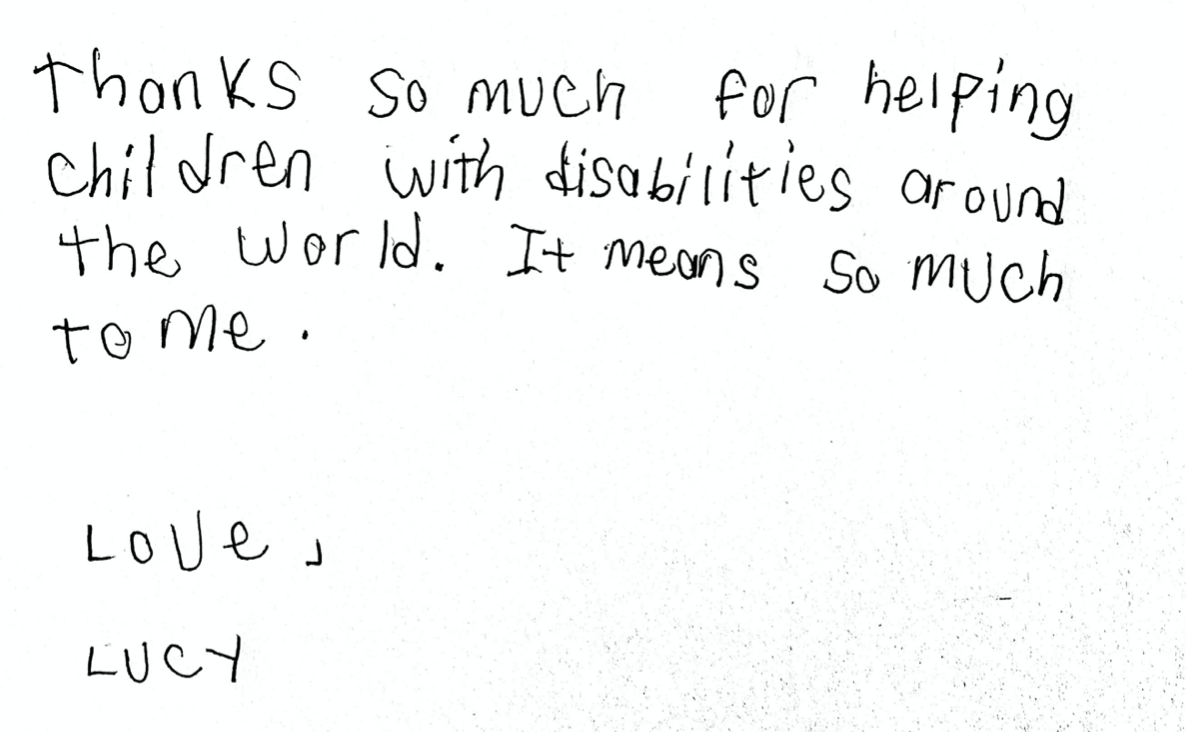 Thanks so much for helping
children with disabilities around
the world. It means so much
to me.
Love,
Lucy